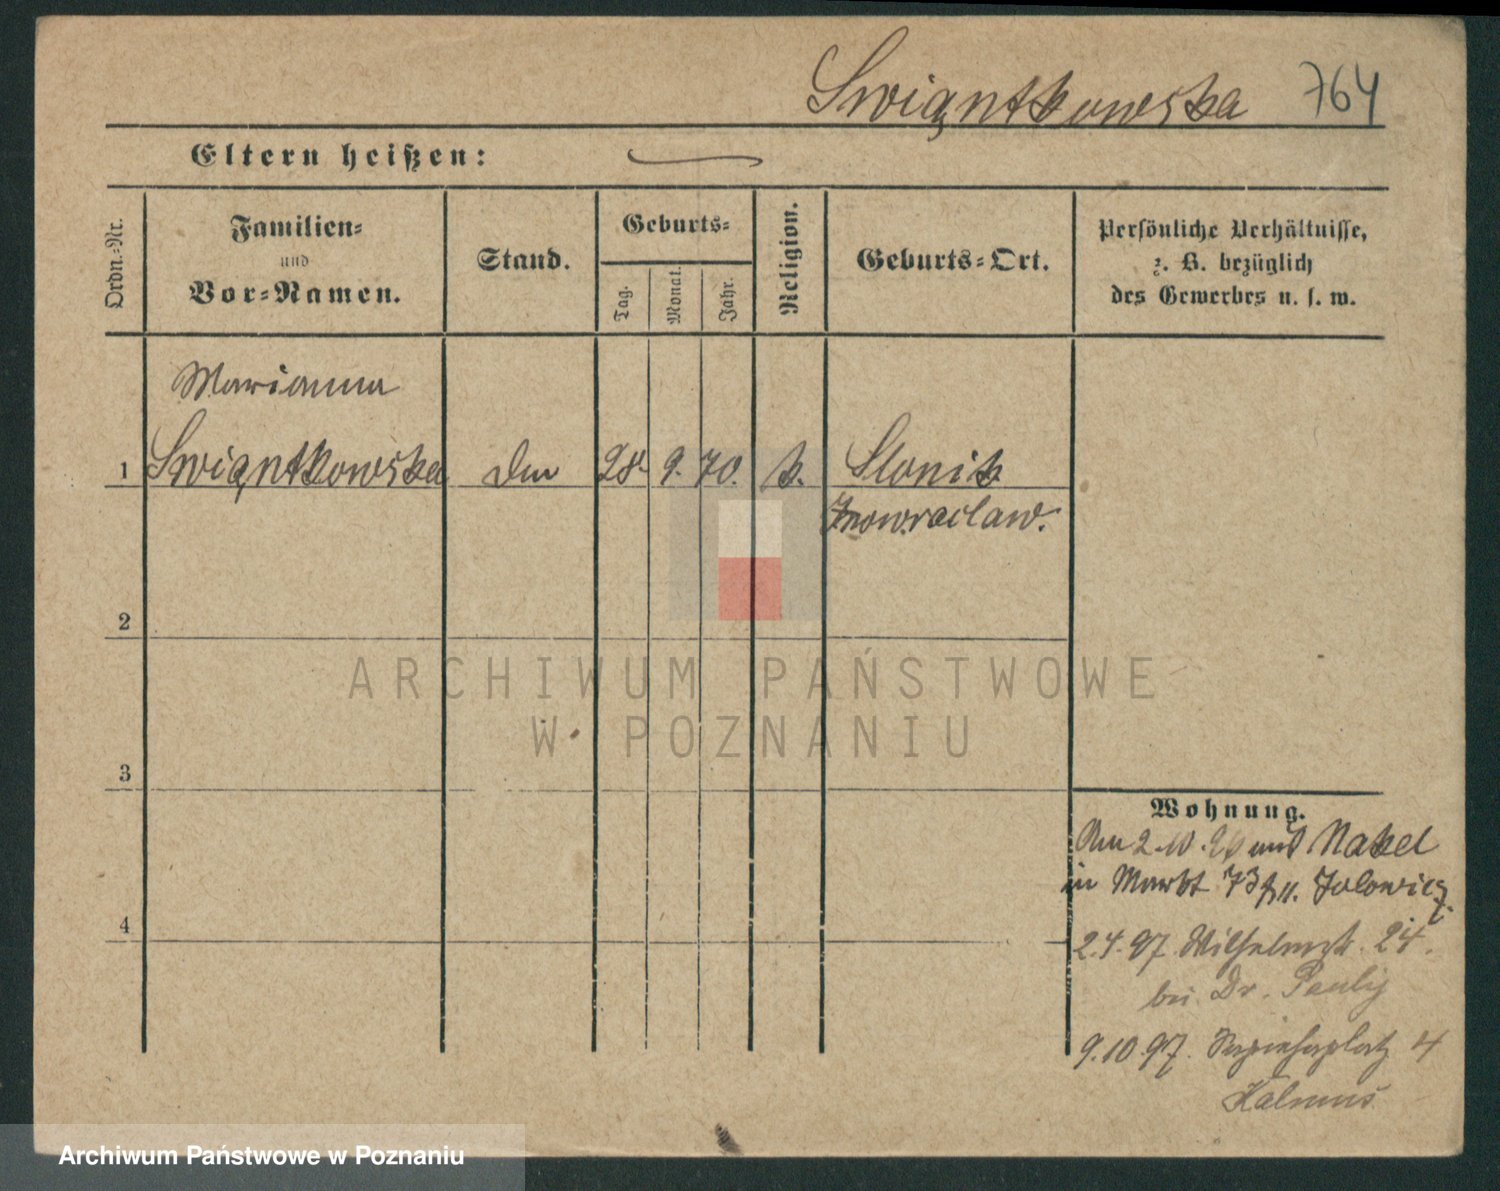 Swiąntkowska 764
Eltern heißen:
Ordn.-Nr.
Familien-
und
Vor-Namen.
Stand.
Geburts-
Tag.
Monat.
Jahr.
Religion.
Geburts-Ort.
Persönliche Verhältnisse,
z. B. bezüglich
des Gewerbes u. s. w.
Marianna
1 Swiąntkowska 28 9. 70. k. Slonik
Inowraclaw.
2
3
4
Wohnung.
Am 2.10. aus Nakel
in Markt 73 Jolowicz.
2.4.97. Wilhelmstr. 24.
bei Dr. Pauly
9.10.97. Sapiehaplatz 4
Kalmus
ARCHIWUM PAŃSTWOWE
W POZNANIU
Archiwum Państwowe w Poznaniu